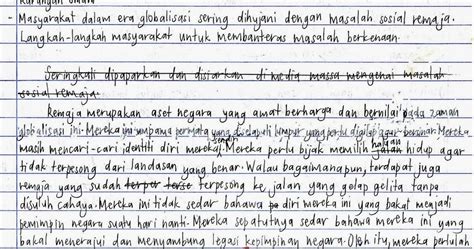 - Masyarakat dalam era globalisasi sering dihujani dengan masalah sosial remaja.
Langkah-langkah masyarakat untuk membanteras masalah berkenaan.
Seringkali dipaparkan dan disiarkan di media massa mengenai masalah
sosial remaja.
Remaja merupakan aset negara yang amat berharga dan bernilai pada zaman
globalisasi ini. Mereka ini umpama permata yang diselaputi lumpur yang perlu digilap agar bersinar. Mereka
masih mencari-cari identiti diri mereka sendiri. Mereka perlu bijak memilih jalan haluan hidup agar
tidak terpesong dari landasan yang benar. Walau bagaimanapun, terdapat juga
remaja yang sudah terper terse terpesong ke jalan yang gelap gelita tanpa
disuluh cahaya. Mereka ini tidak sedar bahawa pa diri mereka ini yang bakal menjadi
pemimpin negara suatu hari nanti. Mereka sepatutnya sedar bahawa mereka ini yang
bakal menerajui dan menyambung legasi kepimpinan negara. Oleh itu, mereka perlulah